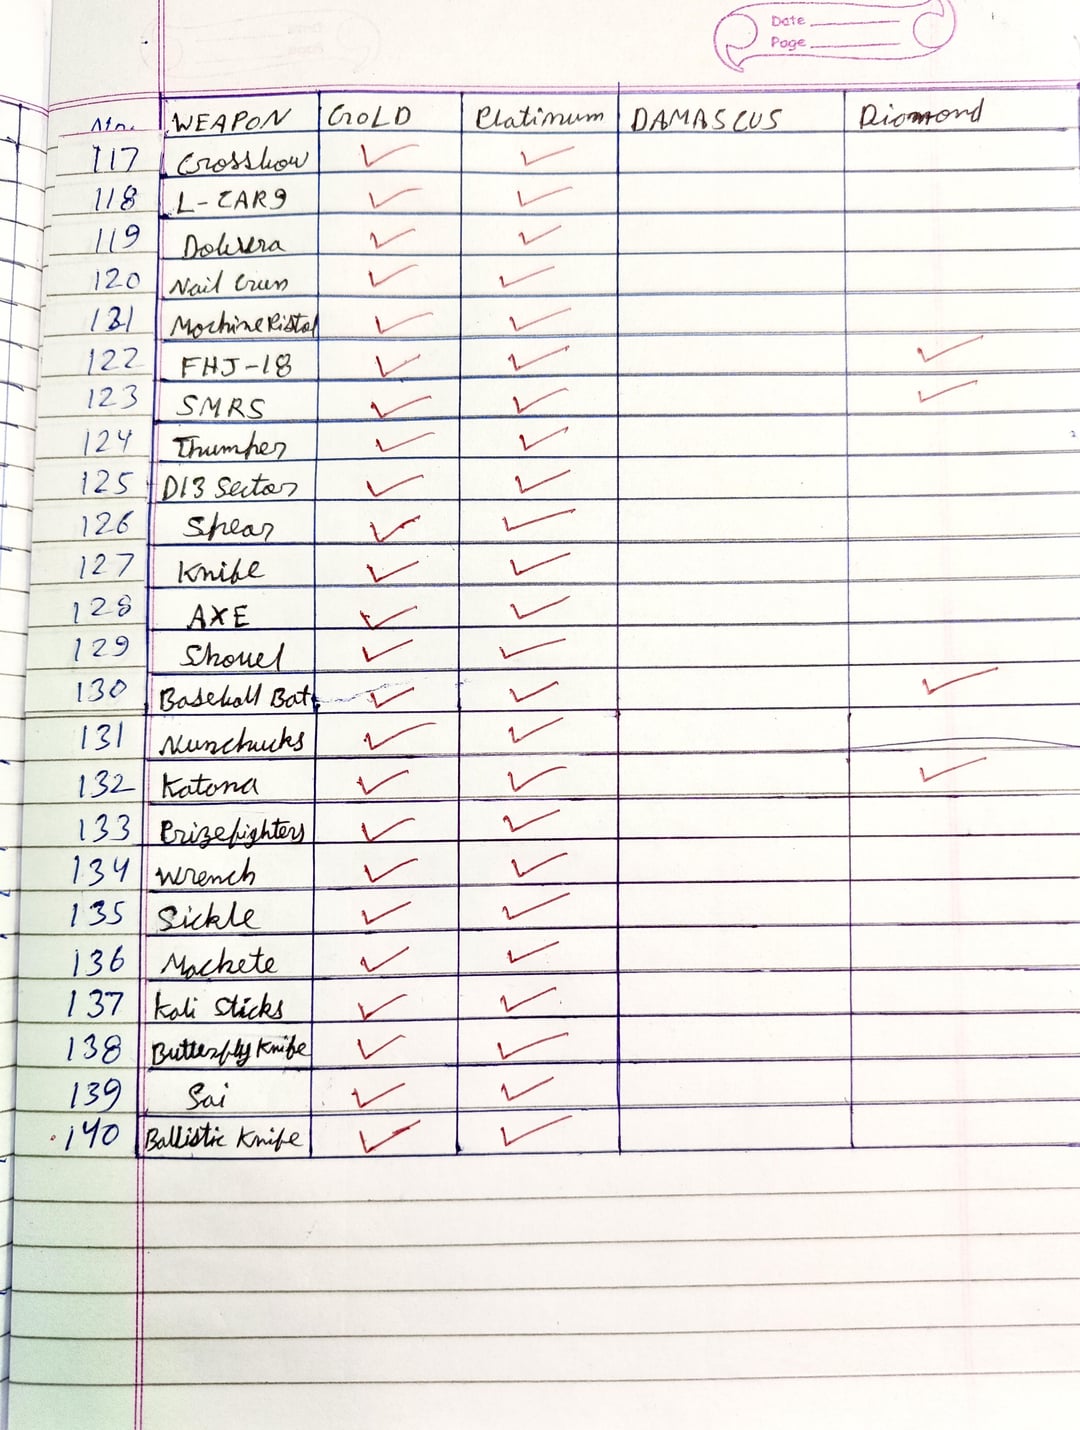 Date
Page
WEAPON GOLD Platinum DAMASCUS Diamond
117 Crossbow ✓ ✓
118 L-CAR9 ✓ ✓
119 Dobvra ✓ ✓
120 Nail Gun ✓ ✓
121 Machine Pistol ✓ ✓
122 FHJ-18 ✓ ✓ ✓
123 SMRS ✓ ✓ ✓
124 Thumper ✓ ✓
125 D13 Sector ✓ ✓
126 Spear ✓ ✓
127 Knife ✓ ✓
128 AXE ✓ ✓
129 Shovel ✓ ✓
130 Baseball Bat ✓ ✓ ✓
131 Nunchucks ✓ ✓
132 Katana ✓ ✓ ✓
133 Prizefighters ✓ ✓
134 Wrench ✓ ✓
135 Sickle ✓ ✓
136 Machete ✓ ✓
137 Kali Sticks ✓ ✓
138 Butterfly Knife ✓ ✓
139 Sai ✓ ✓
140 Ballistic Knife ✓ ✓